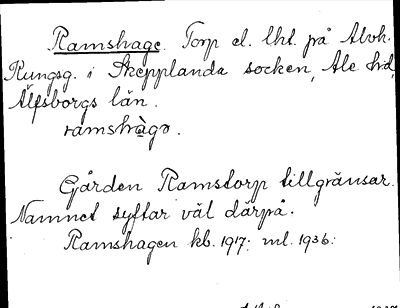 Ramshage. Torp el. lht. på Aboh.
Kungsg. i Skepplanda socken, Ale hd,
Älfsborgs län.
ramshàgə.
Gården Ramstorp tillgränsar.
Namnet syftar väl därpå.
Ramshagen kb. 1917: ml. 1936: